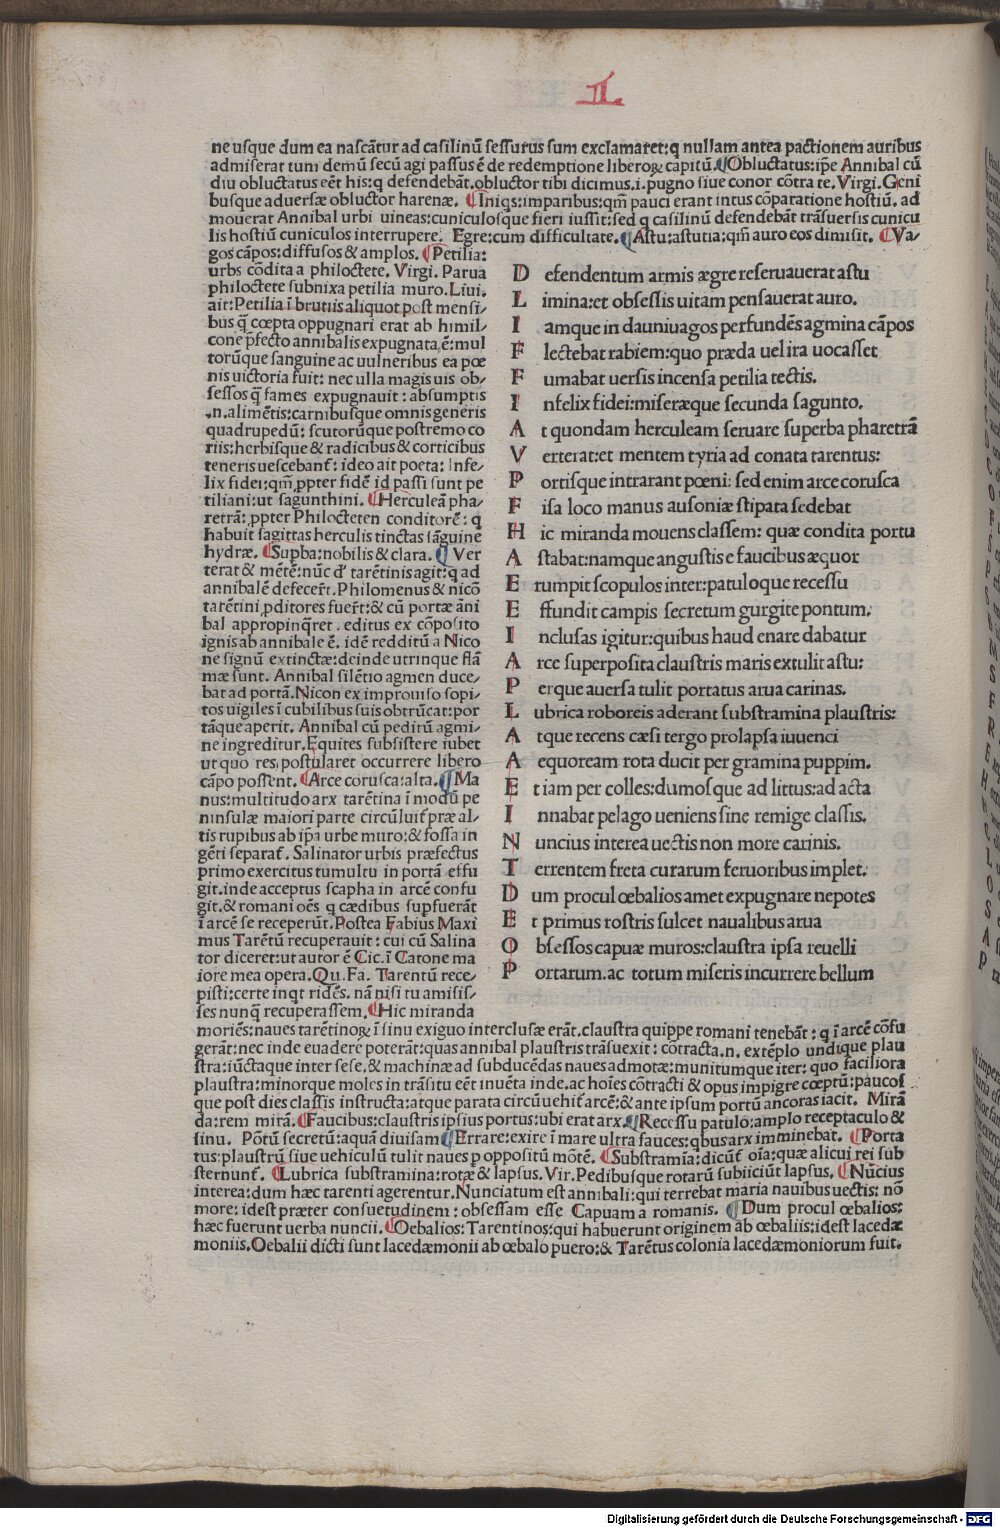 II.
ne usque dum ea nascãtur ad casilinũ sessurus sum exclamaret: q nullam antea pactionem auribus
admiserat tum demũ secũ agi passus ẽ de redemptione liberoꝝ capitũ. ¶Obluctatus: ip̃e Annibal cũ
diu obluctatus eẽt his: q defendebãt. obluctor tibi dicimus .i. pugno siue conor cõtra te. Virgi. Geni
busque aduersæ obluctor harenæ. ¶Iniqs: imparibus: qm̃ pauci erant intus cõparatione hostiũ. ad
mouerat Annibal urbi uineas: cuniculosque fieri iussit: sed q casilinũ defendebãt trãsuersis cunicu
lis hostiũ cuniculos interrupere. Egre: cum difficultate. ¶Astu: astutia: qm̃ auro eos dimisit. ¶Va⸗
gos cãpos: diffusos & amplos. ¶Petilia:
urbs cõdita a philoctete. Virgi. Parua
philoctete subnixa petilia muro. Liui.
ait: Petilia ĩ brutiis aliquot post mensi⸗
bus q̃ cœpta oppugnari erat ab himil⸗
cone p̃fecto annibalis expugnata, ẽ: mul
torũque sanguine ac uulneribus ea pœ
nis uictoria fuit: nec ulla magis uis ob⸗
sessos q̃ fames expugnauit: absumptis
.n. alimẽtis: carnibusque omnis generis
quadrupedũ: scutorũque postremo co
riis: herbisque & radicibus & corticibus
teneris uescebant̃: ideo ait poeta: Infe⸗
lix fidei: qm̃ ꝓpter fidẽ id passi sunt pe
tiliani: ut sagunthini. ¶Herculeã pha⸗
retrã: ꝓpter Philocteten conditorẽ: q
habuit sagittas herculis tinctas sãguine
hydræ. ¶Supba: nobilis & clara. ¶Ver
terat & mẽtẽ: nũc d' tarẽtinis agit: q ad
annibalẽ defecer̃t. Philomenus & nicõ
tarẽtini ꝓditores fuer̃t: & cũ portæ ãni
bal appropinq̃ret. editus ex cõposito
ignis ab annibale ẽ. idẽ redditũ a Nico
ne signũ extinctæ: deinde utrinque flã
mæ sunt. Annibal silẽtio agmen duce⸗
bat ad portã. Nicon ex improuiso sopi⸗
tos uigiles ĩ cubilibus suis obtrũcat: por
tãque aperit. Annibal cũ peditũ agmi⸗
ne ingreditur. Equites subsistere iubet
ut quo res postularet occurrere libero
cãpo possent. ¶Arce corusca: alta. ¶Ma
nus: multitudo arx tarẽtina ĩ modũ pe
ninsulæ maiori parte circũluit̃ præ al⸗
tis rupibus ab ip̃a urbe muro: & fossa in
gẽti separat̃. Salinator urbis præfectus
primo exercitus tumultu in portã effu
git. inde acceptus scapha in arcẽ confu
git. & romani oẽs q cædibus supfuerãt
ĩ arcẽ se receperũt. Postea Fabius Maxi
mus Tarẽtũ recuperauit: cui cũ Salina
tor diceret: ut autor ẽ Cic. ĩ Catone ma
iore mea opera. Qu. Fa. Tarentũ rece⸗
pisti: certe inqt ridẽs. nã nisi tu amisis⸗
ses nunq̃ recuperassem. ¶Hic miranda
D efendentum armis ægre reseruauerat astu
L imina: et obsessis uitam pensauerat auro.
I amque in dauniuagos perfundẽs agmina cãpos
F lectebat rabiem: quo præda uel ira uocasset
F umabat uersis incensa petilia tectis.
I nfelix fidei: miseræque secunda sagunto.
A t quondam herculeam seruare superba pharetrã
V erterat: et mentem tyria ad conata tarentus:
P ortisque intrarant pœni: sed enim arce corusca
F isa loco manus ausoniæ stipata sedebat
H ic miranda mouens classem: quæ condita portu
A stabat: namque angustis e faucibus æquor
E rumpit scopulos inter: patuloque recessu
E ffundit campis secretum gurgite pontum.
I nclusas igitur: quibus haud enare dabatur
A rce superposita claustris maris extulit astu:
P erque auersa tulit portatus arua carinas.
L ubrica roboreis aderant substramina plaustris:
A tque recens cæsi tergo prolapsa iuuenci
A equoream rota ducit per gramina puppim.
E t iam per colles: dumosque ad littus: ad acta
I nnabat pelago ueniens sine remige classis.
N uncius interea uectis non more carinis.
T errentem freta curarum feruoribus implet.
D um procul œbalios amet expugnare nepotes
E t primus rostris sulcet naualibus arua
O bsessos capuæ muros: claustra ipsa reuelli
P ortarum. ac totum miseris incurrere bellum
moriẽs: naues tarẽtinoꝝ ĩ sinu exiguo interclusæ erãt. claustra quippe romani tenebãt: q ĩ arcẽ cõfu
gerãt: nec inde euadere poterãt: quas annibal plaustris trãsuexit: cõtracta .n. extẽplo undique plau
stra: iũctaque inter sese. & machinæ ad subducẽdas naues admotæ: munitumque iter: quo faciliora
plaustra: minorque moles in trãsitu eẽt inuẽta inde. ac hoĩes cõtracti & opus impigre cœptũ: paucos
que post dies classis instructa: atque parata circũuehit̃ arcẽ: & ante ipsum portũ ancoras iacit. Mirã
da: rem mirã. ¶Faucibus: claustris ipsius portus: ubi erat arx. ¶Recessu patulo: amplo receptaculo &
sinu. Põtũ secretũ: aquã diuisam ¶Errare: exire ĩ mare ultra fauces: qbus arx imminebat. ¶Porta
tus: plaustrũ siue uehiculũ tulit naues p oppositũ mõtẽ. ¶Substramĩa: dicũt̃ oĩa: quæ alicui rei sub
sternunt̃. ¶Lubrica substramina: rotæ & lapsus. Vir. Pedibusque rotarũ subiiciũt lapsus. ¶Nũcius
interea: dum hæc tarenti agerentur. Nunciatum est annibali: qui terrebat maria nauibus uectis: nõ
more: idest præter consuetudinem: obsessam esse Capuam a romanis. ¶Dum procul œbalios:
hæc fuerunt uerba nuncii. ¶Oebalios: Tarentinos: qui habuerunt originem ab œbaliis: idest lacedæ
moniis. Oebalii dicti sunt lacedæmonii ab œbalo puero: & Tarẽtus colonia lacedæmoniorum fuit.
Digitalisierung gefördert durch die Deutsche Forschungsgemeinschaft - DFG